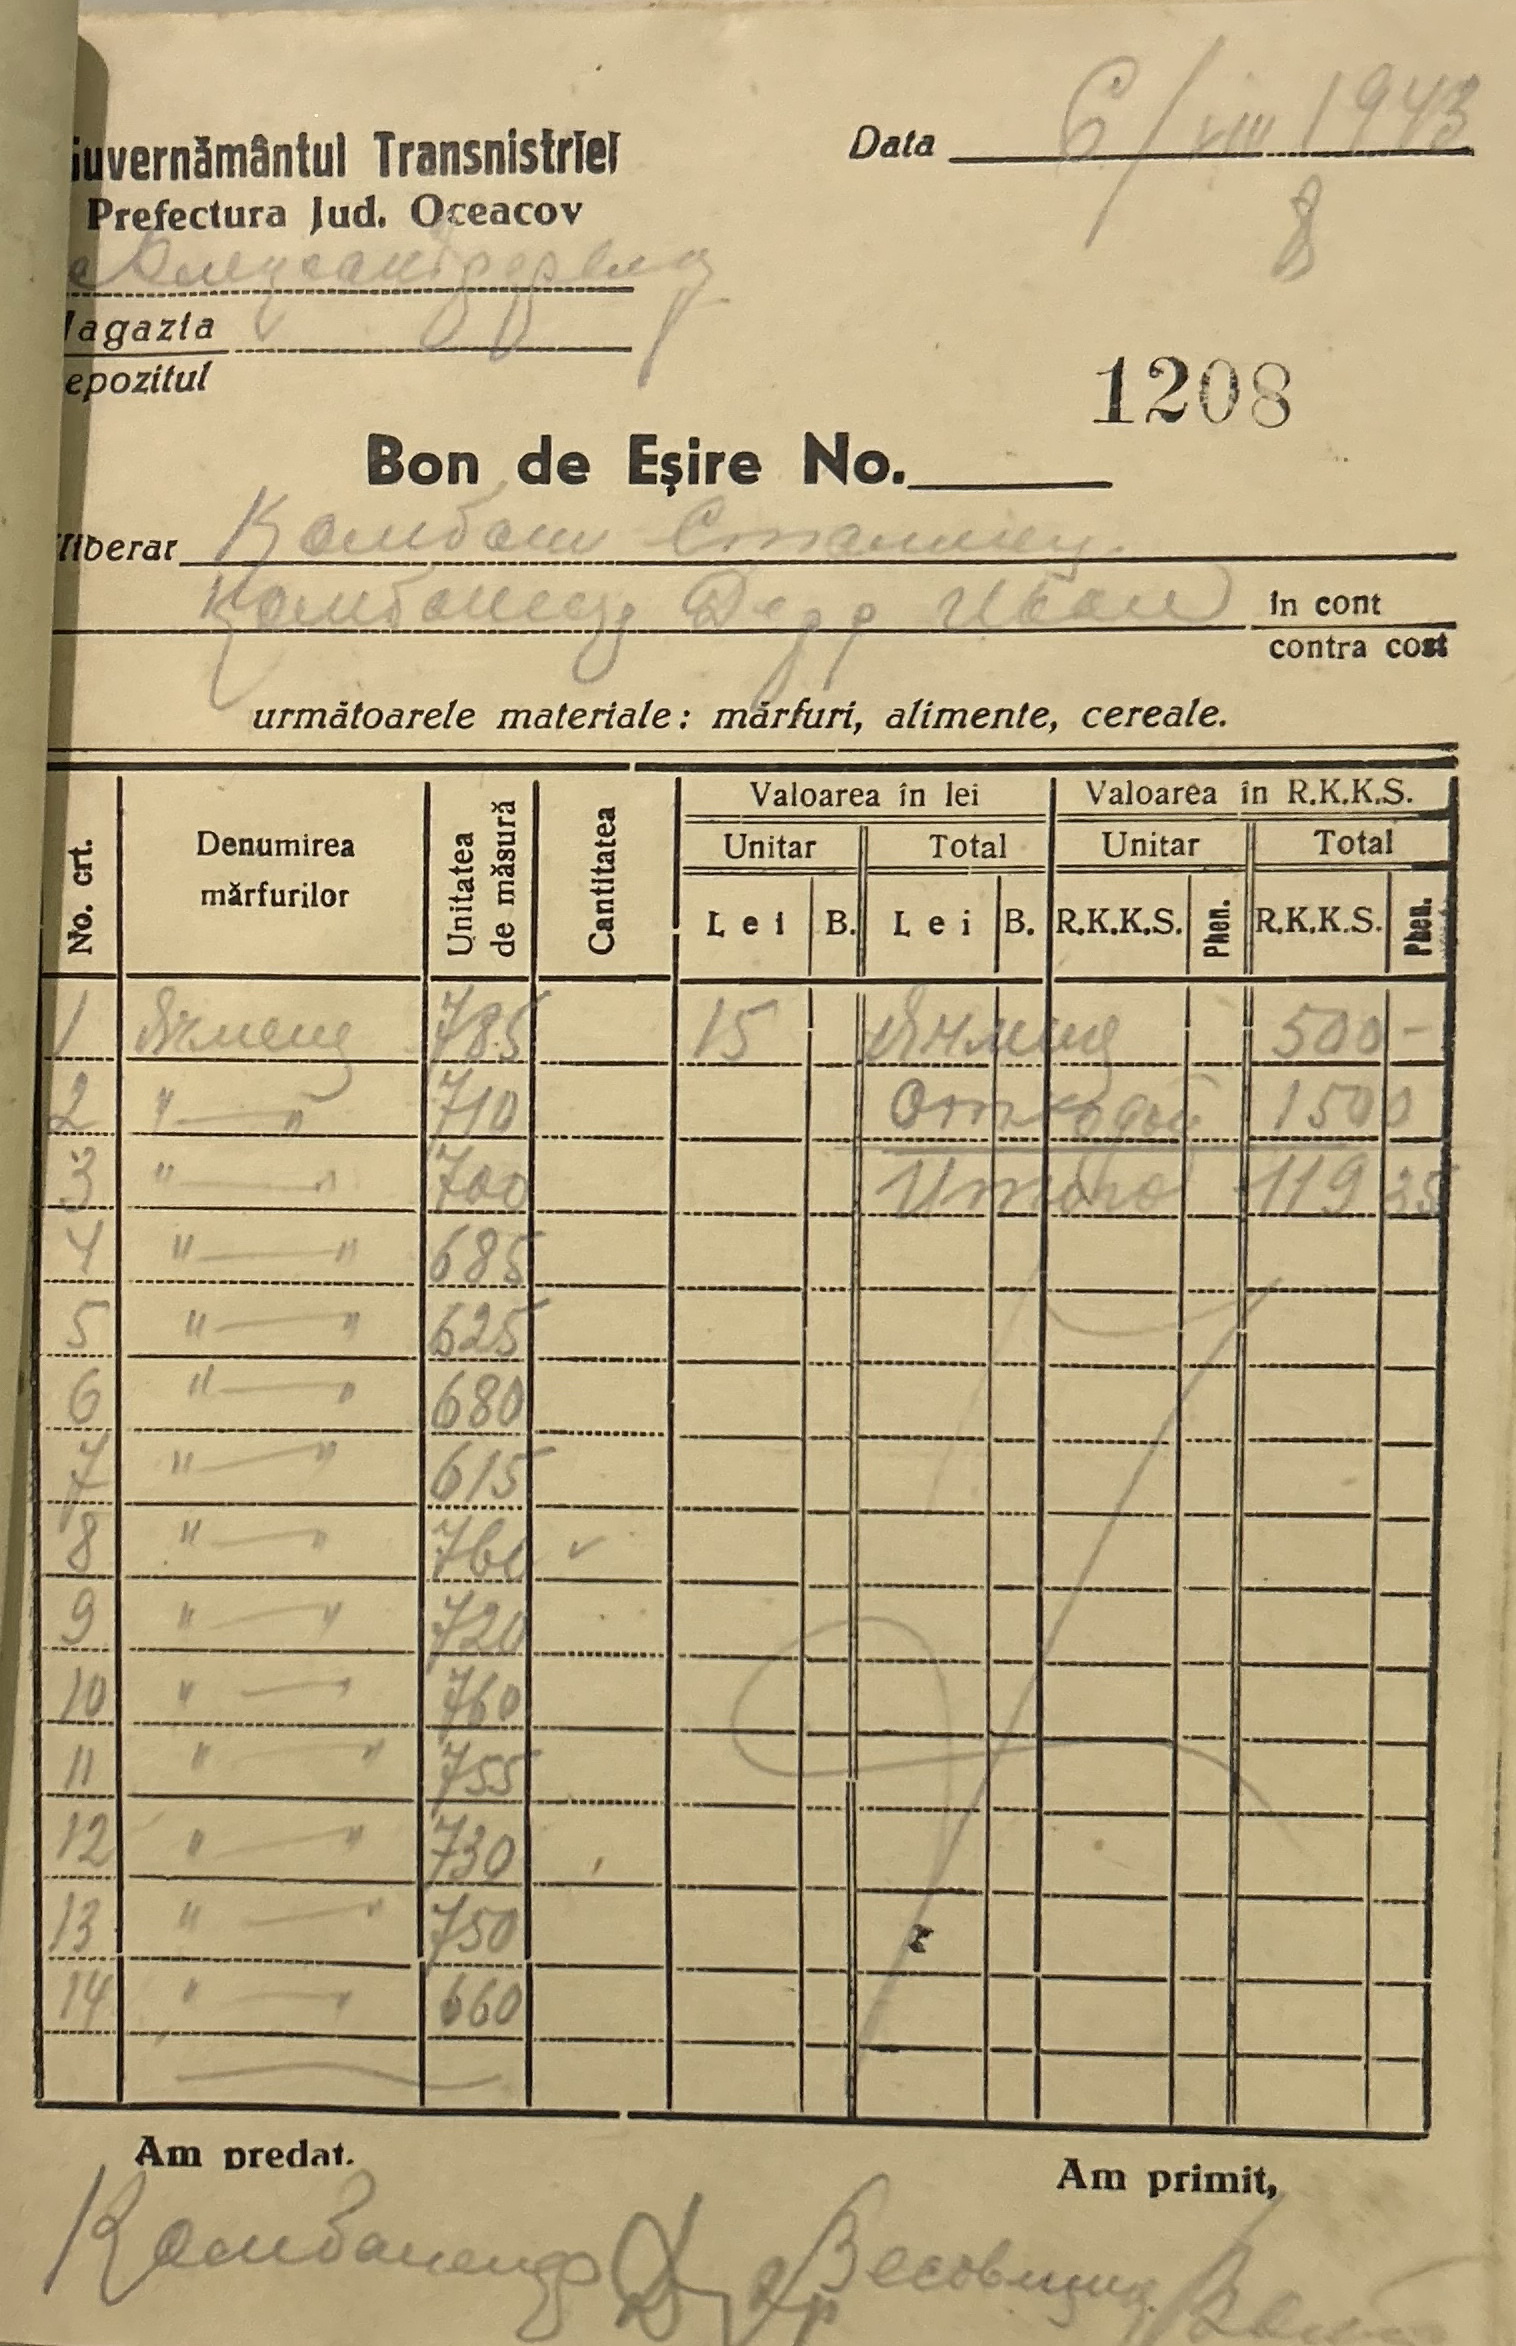 Guvernământul Transnistriei
Data 6/VIII 1943
8
Prefectura Jud. Oceacov
Magazia
Depozitul
1208
Bon de Eşire No.
Eliberar
in cont
contra cost
următoarele materiale: mărfuri, alimente, cereale.
No. crt. Denumirea mărfurilor Unitatea de măsură Cantitatea Valoarea în lei Valoarea în R.K.K.S.
Unitar Total Unitar Total
Lei B. Lei B. R.K.K.S. Phen. R.K.K.S. Phen.
1 Ячмень 785 15 Ячмень 500-
2 "—" 710 Отходы 1500
3 "—" 700 Итого 11935
4 "—" 685
5 "—" 625
6 "—" 680
7 "—" 615
8 "—" 760
9 "—" 720
10 "—" 760
11 "—" 755
12 "—" 730
13 "—" 750
14 "—" 660
Am predat.
Am primit,
Весовщик